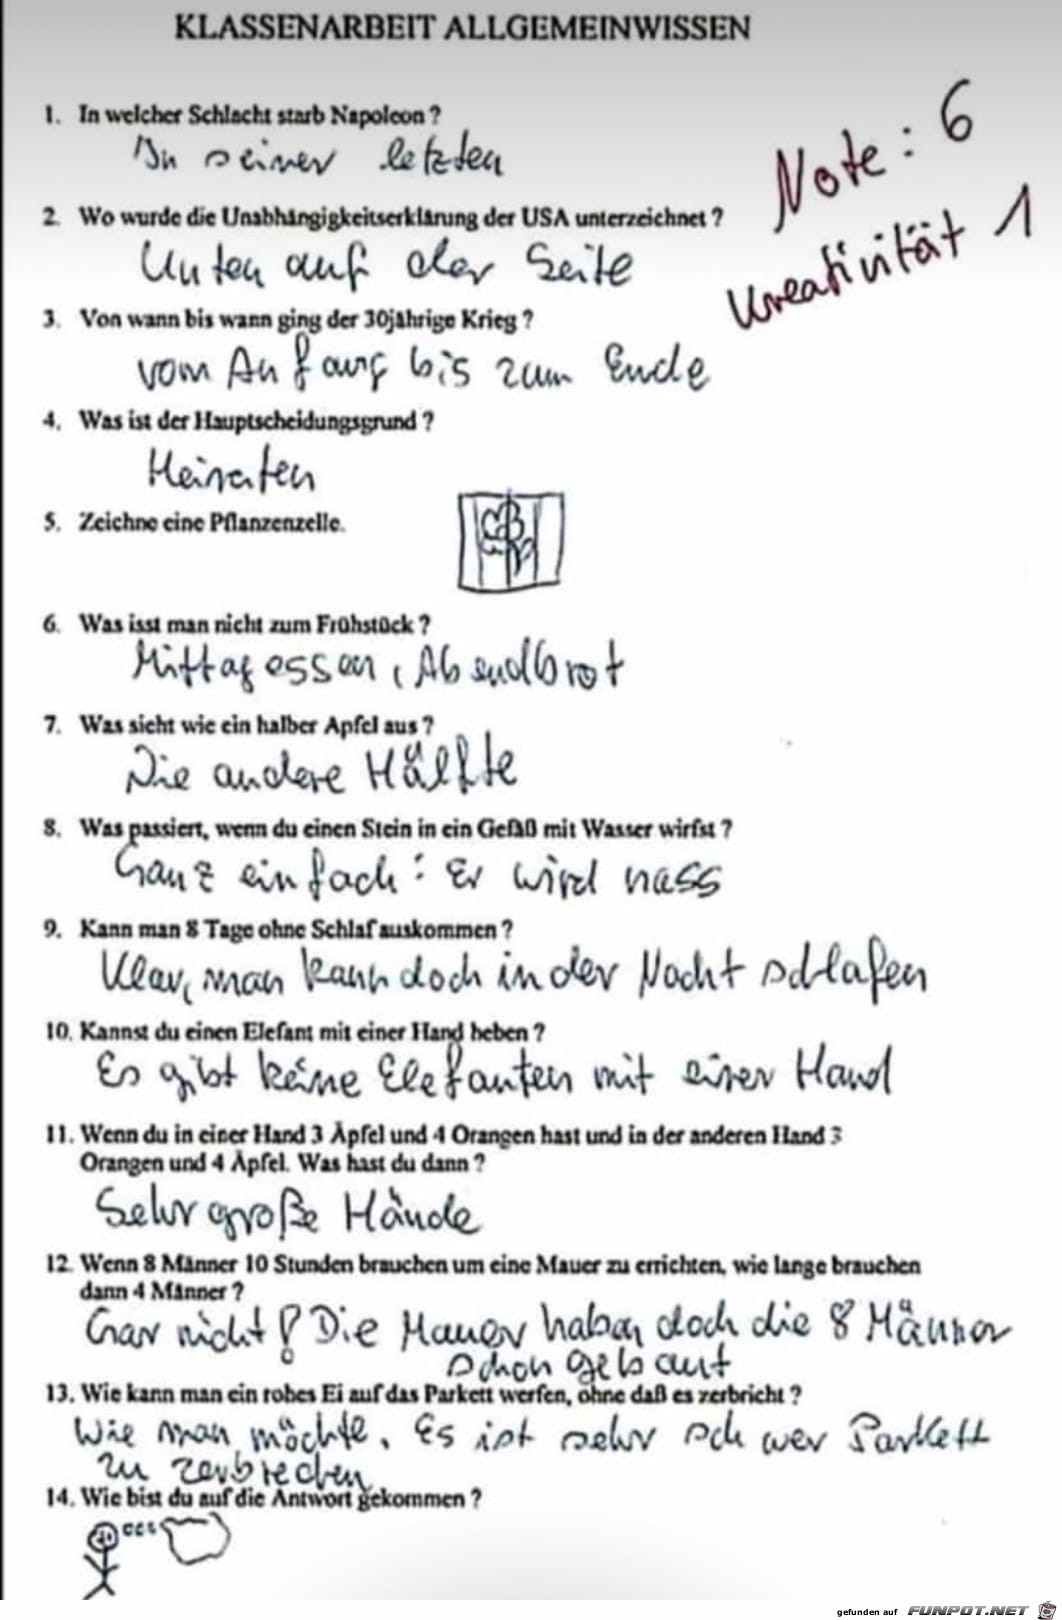 KLASSENARBEIT ALLGEMEINWISSEN
Note: 6
Kreativität 1
1. In welcher Schlacht starb Napoleon?
In seiner letzten
2. Wo wurde die Unabhängigkeitserklärung der USA unterzeichnet?
Unten auf der Seite
3. Von wann bis wann ging der 30jährige Krieg?
vom Anfang bis zum Ende
4. Was ist der Hauptscheidungsgrund?
Heiraten
5. Zeichne eine Pflanzenzelle.
6. Was isst man nicht zum Frühstück?
Mittagessen, Abendbrot
7. Was sieht wie ein halber Apfel aus?
Die andere Hälfte
8. Was passiert, wenn du einen Stein in ein Gefäß mit Wasser wirfst?
Ganz einfach: Er wird nass
9. Kann man 8 Tage ohne Schlaf auskommen?
Klar, man kann doch in der Nacht schlafen
10. Kannst du einen Elefant mit einer Hand heben?
Es gibt keine Elefanten mit einer Hand
11. Wenn du in einer Hand 3 Äpfel und 4 Orangen hast und in der anderen Hand 3
Orangen und 4 Äpfel. Was hast du dann?
Sehr große Hände
12. Wenn 8 Männer 10 Stunden brauchen um eine Mauer zu errichten, wie lange brauchen
dann 4 Männer?
Gar nicht! Die Mauer haben doch die 8 Männer
schon gebaut
13. Wie kann man ein rohes Ei auf das Parkett werfen, ohne daß es zerbricht?
Wie man möchte. Es ist sehr schwer Parkett
zu zerbrechen
14. Wie bist du auf die Antwort gekommen?
gefunden auf FUNPOT.NET